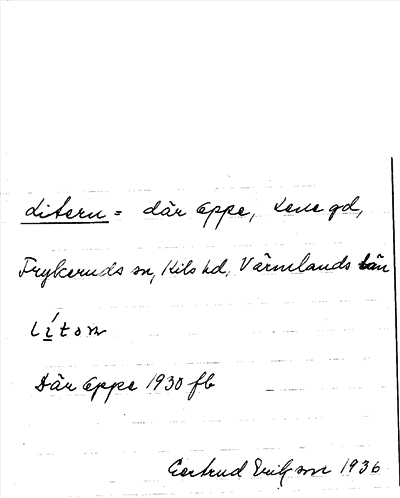 Litern = där oppe, Lene gd,
Frykeruds sn, Kils hd, Värmlands län
Lítorn
Där oppe 1930 fb
Gertrud Erikson 1936